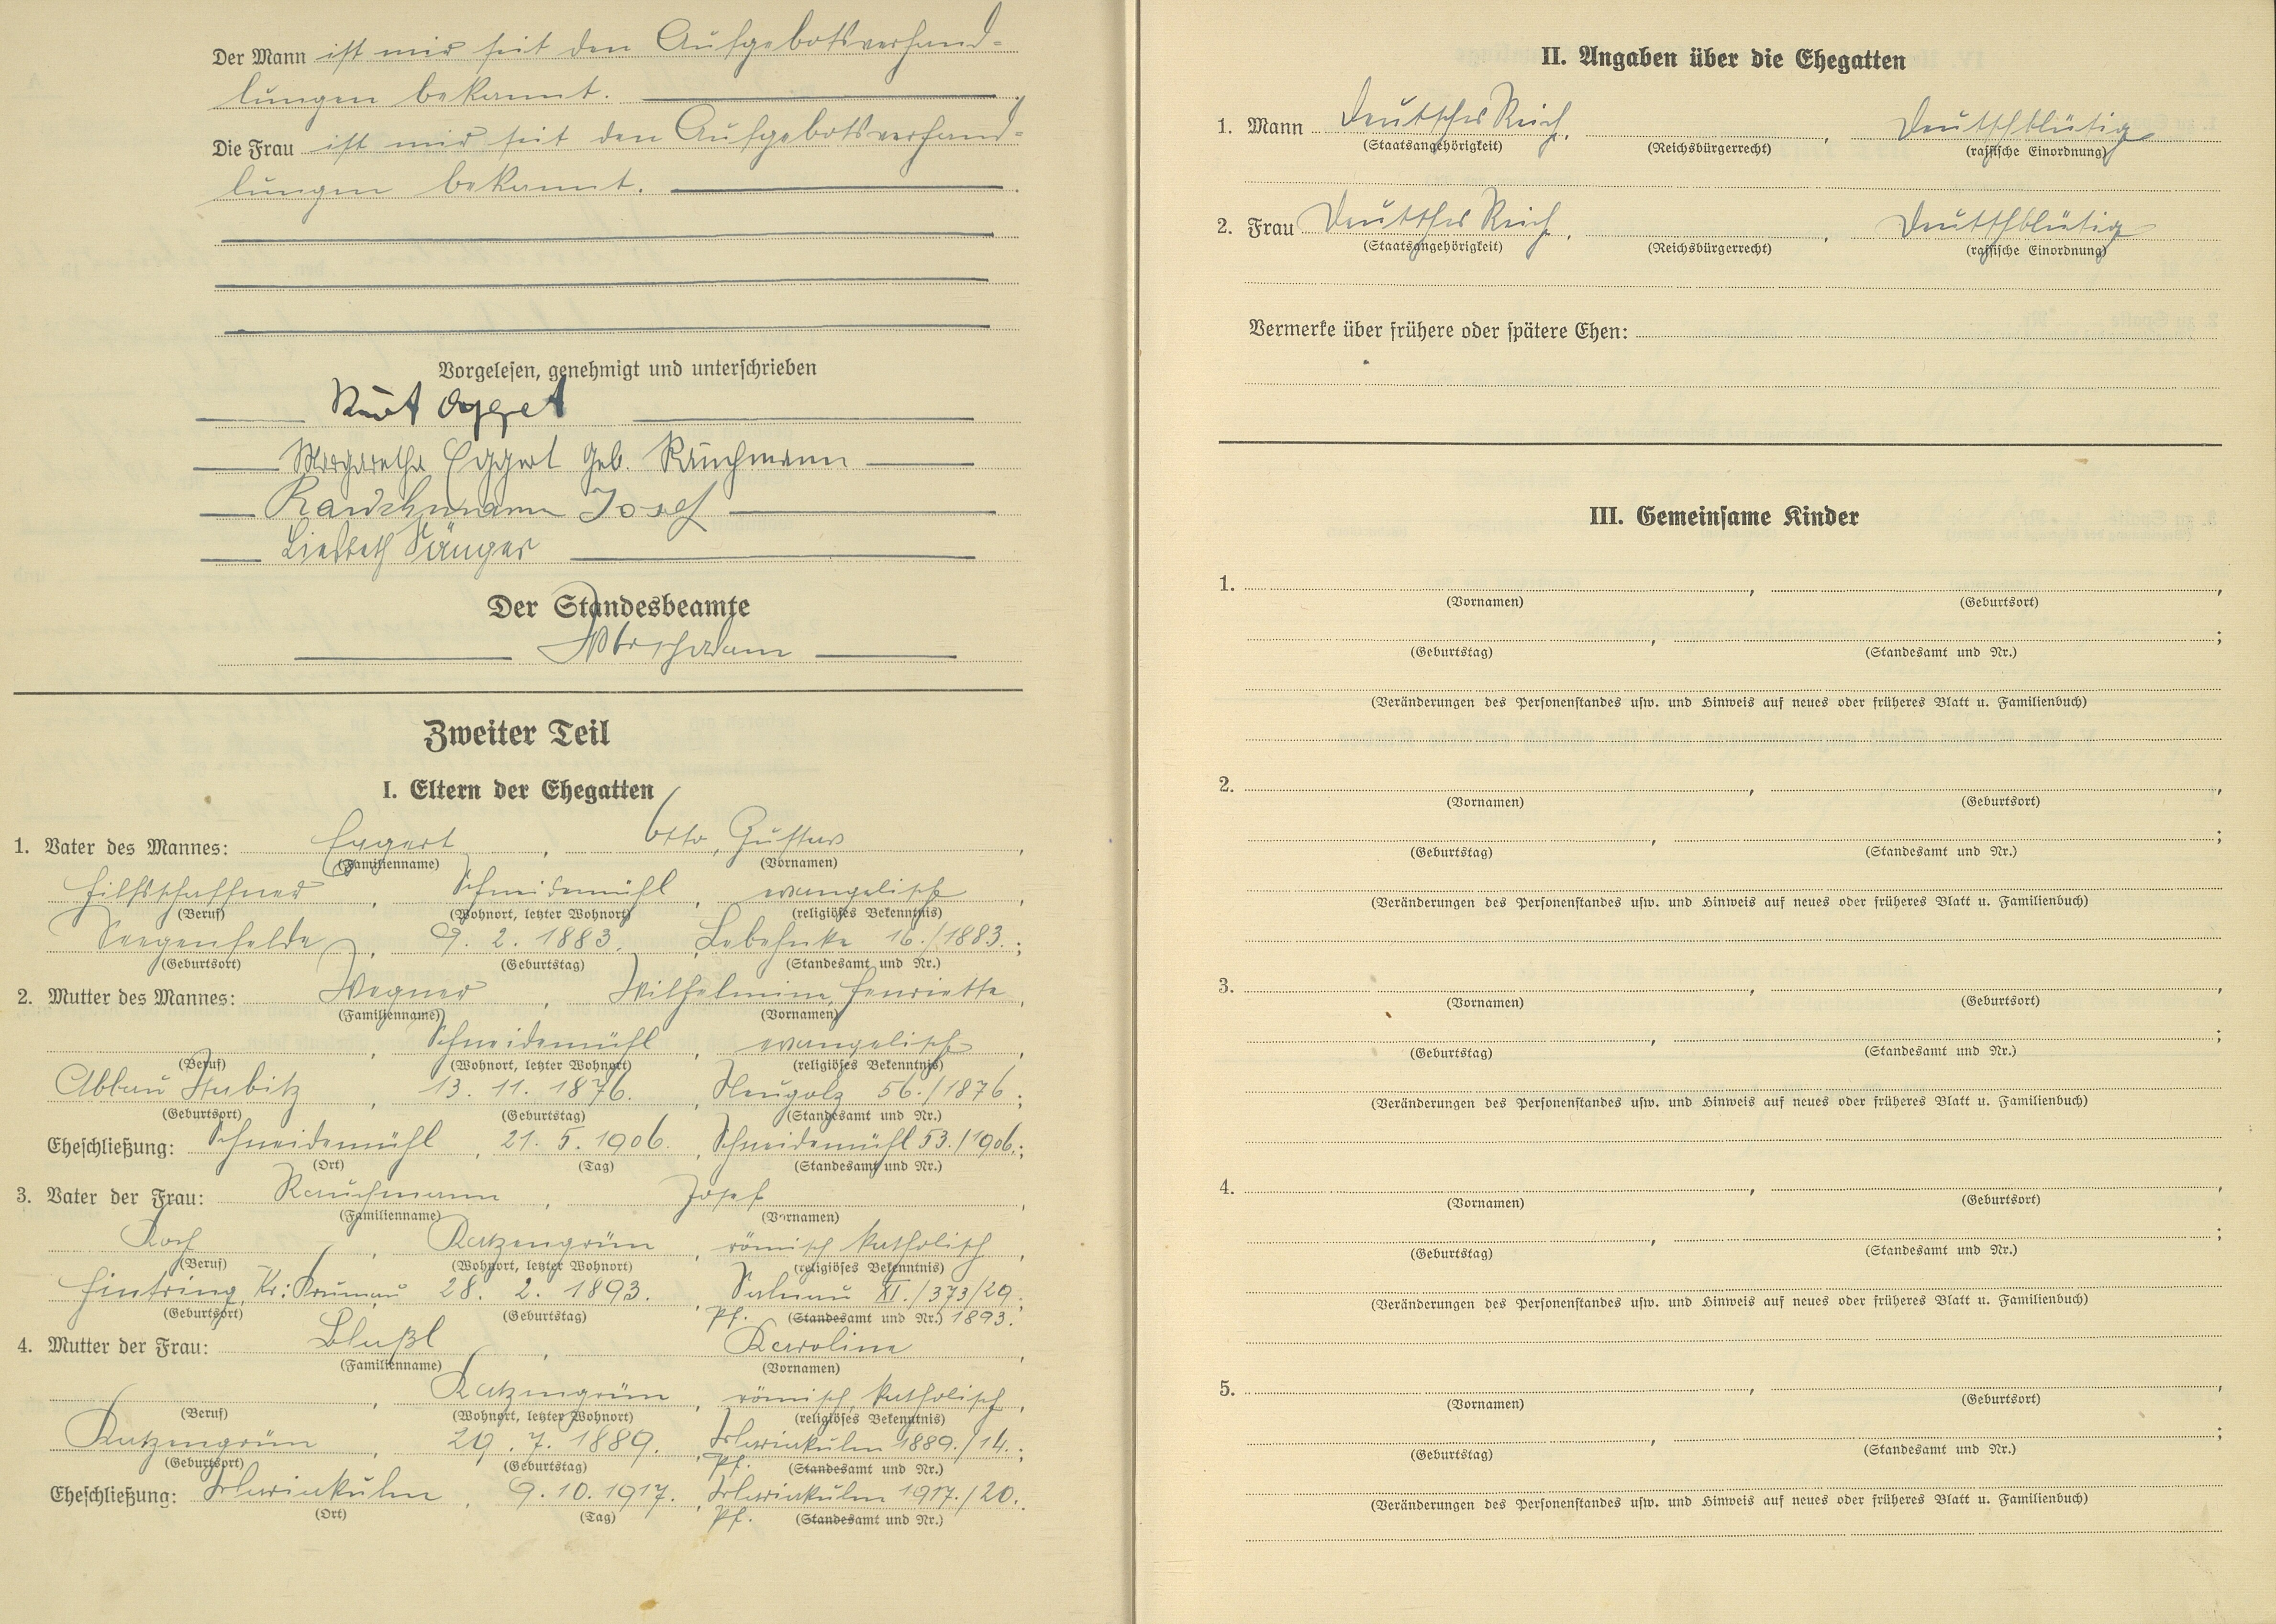 Der Mann ist mir seit den Aufgebotsverhand-
lungen bekannt.
Die Frau ist mir seit den Aufgebotsverhand-
lungen bekannt.
Vorgelesen, genehmigt und unterschrieben
Kurt Eggert
Margaretha Eggert geb. Rauchmann
Rauchmann Josef
Liesbeth Sänger
Der Standesbeamte
Zweiter Teil
I. Eltern der Ehegatten
1. Vater des Mannes: Eggert, Otto, Gustav,
(Familienname) (Vornamen)
Hilfsschaffner, Schneidemühl, evangelisch,
(Beruf) (Wohnort, letzter Wohnort) (religiöses Bekenntnis)
Seegenfelde, 9. 2. 1883., Lebehnke 16./1883.;
(Geburtsort) (Geburtstag) (Standesamt und Nr.)
2. Mutter des Mannes: Wegner, Wilhelmine, Henriette,
(Familienname) (Vornamen)
, Schneidemühl, evangelisch,
(Beruf) (Wohnort, letzter Wohnort) (religiöses Bekenntnis)
Abbau Stabitz, 13. 11. 1876., Neugolz 56./1876;
(Geburtsort) (Geburtstag) (Standesamt und Nr.)
Eheschließung: Schneidemühl, 21. 5. 1906., Schneidemühl 53./1906.;
(Ort) (Tag) (Standesamt und Nr.)
3. Vater der Frau: Rauchmann, Josef,
(Familienname) (Vornamen)
Koch, Katzengrün, römisch katholisch,
(Beruf) (Wohnort, letzter Wohnort) (religiöses Bekenntnis)
Hintring, Kr: Krumau 28. 2. 1893., Salnau XI./373/29;
(Geburtsort) (Geburtstag) Pf. (Standesamt und Nr.) 1893.
4. Mutter der Frau: Bloßl, Karoline,
(Familienname) (Vornamen)
, Katzengrün, römisch, katholisch,
(Beruf) (Wohnort, letzter Wohnort) (religiöses Bekenntnis)
Katzengrün, 29. 7. 1889., Mariakulm 1889./14.;
(Geburtsort) (Geburtstag) Pf. (Standesamt und Nr.)
Eheschließung: Mariakulm, 9. 10. 1917., Mariakulm 1917./20.
(Ort) (Tag) Pf. (Standesamt und Nr.)
II. Angaben über die Ehegatten
1. Mann Deutsches Reich, , Deutschblütig
(Staatsangehörigkeit) (Reichsbürgerrecht) (rassische Einordnung)
2. Frau Deutsches Reich, , Deutschblütig
(Staatsangehörigkeit) (Reichsbürgerrecht) (rassische Einordnung)
Vermerke über frühere oder spätere Ehen:
III. Gemeinsame Kinder
1. , ,
(Vornamen) (Geburtsort)
, ;
(Geburtstag) (Standesamt und Nr.)
(Veränderungen des Personenstandes usw. und Hinweis auf neues oder früheres Blatt u. Familienbuch)
2. , ,
(Vornamen) (Geburtsort)
, ;
(Geburtstag) (Standesamt und Nr.)
(Veränderungen des Personenstandes usw. und Hinweis auf neues oder früheres Blatt u. Familienbuch)
3. , ,
(Vornamen) (Geburtsort)
, ;
(Geburtstag) (Standesamt und Nr.)
(Veränderungen des Personenstandes usw. und Hinweis auf neues oder früheres Blatt u. Familienbuch)
4. , ,
(Vornamen) (Geburtsort)
, ;
(Geburtstag) (Standesamt und Nr.)
(Veränderungen des Personenstandes usw. und Hinweis auf neues oder früheres Blatt u. Familienbuch)
5. , ,
(Vornamen) (Geburtsort)
, ;
(Geburtstag) (Standesamt und Nr.)
(Veränderungen des Personenstandes usw. und Hinweis auf neues oder früheres Blatt u. Familienbuch)